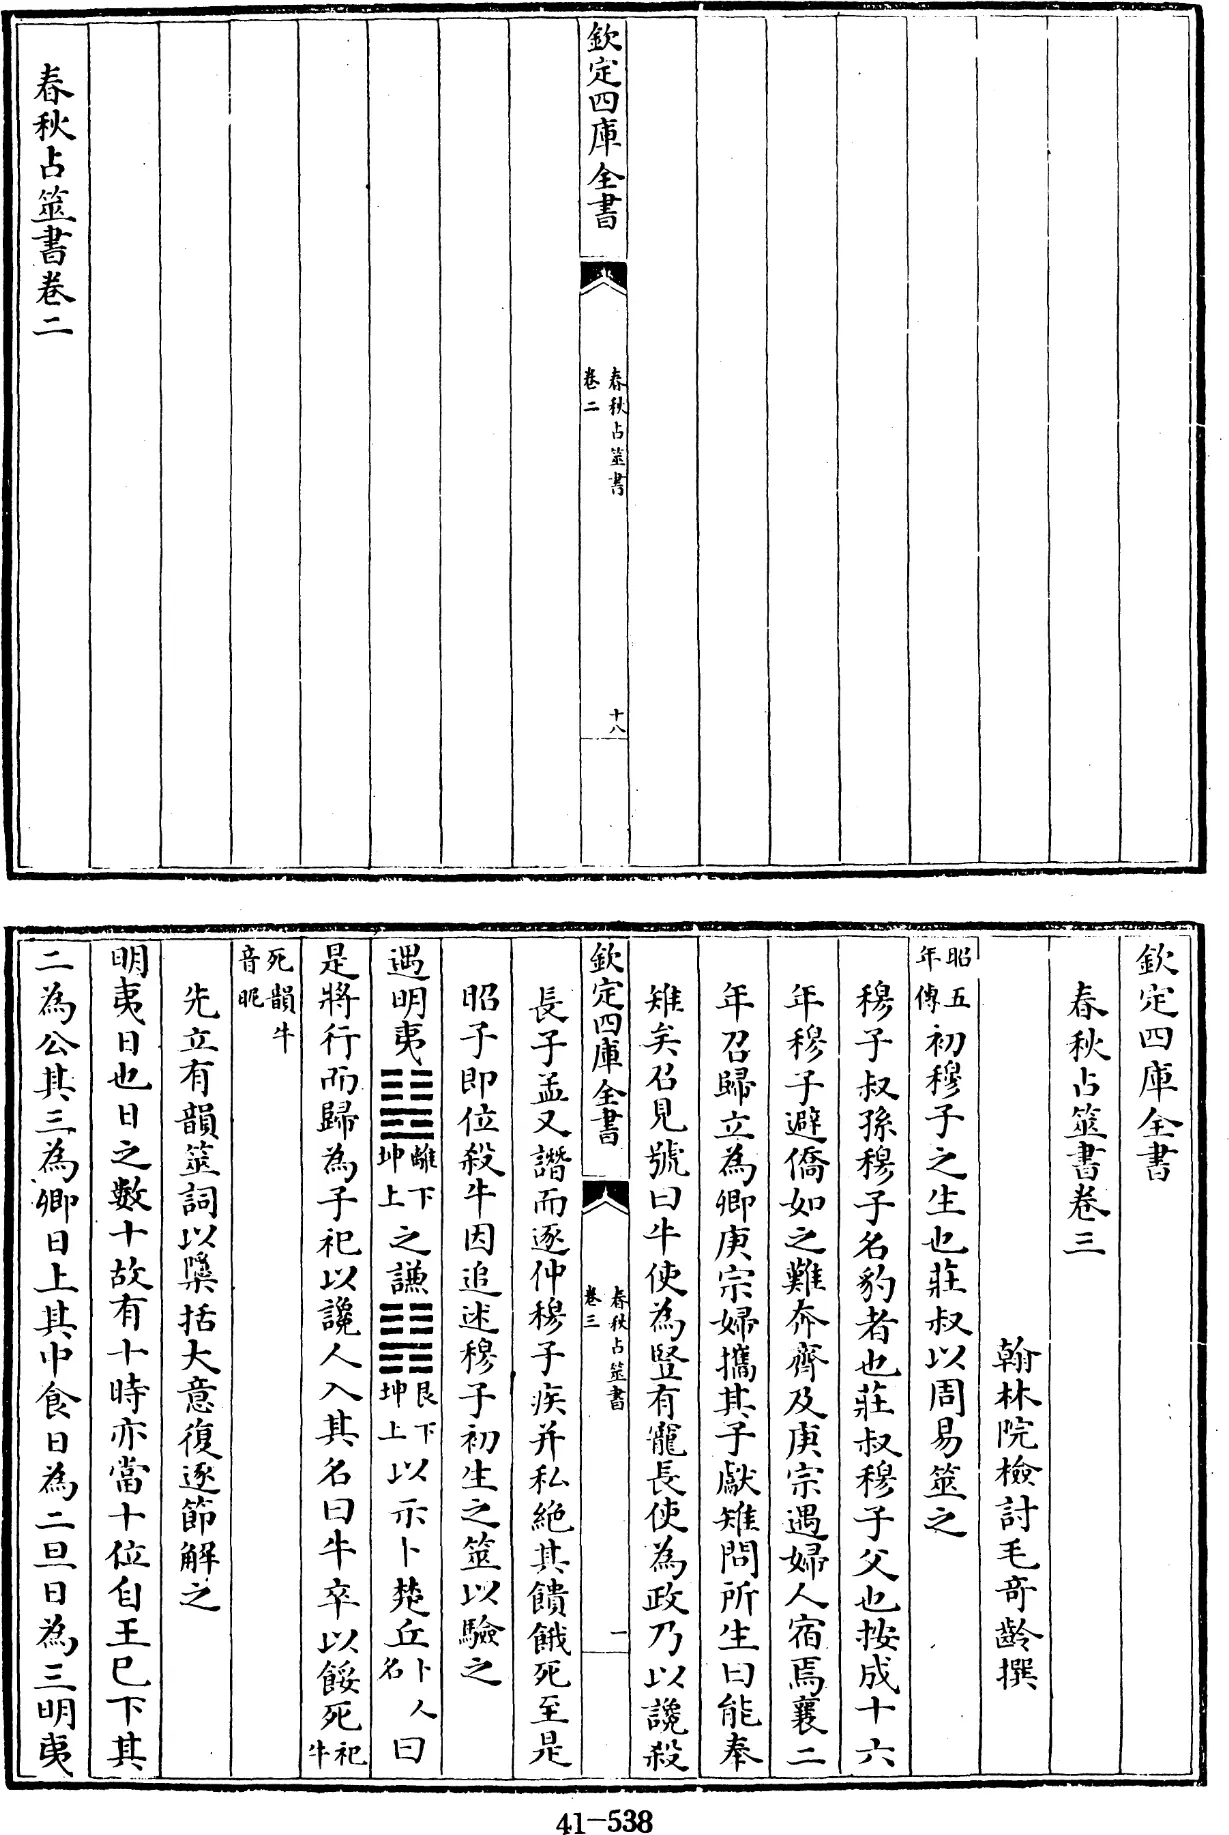 欽定四庫全書
春秋占筮書
卷二
十八
春秋占筮書卷二
欽定四庫全書
春秋占筮書卷三
翰林院檢討毛竒齡撰
昭五年傳初穆子之生也莊叔以周易筮之
穆子叔孫穆子名豹者也莊叔穆子父也按成十六
年穆子避僑如之難奔齊及庚宗遇婦人宿焉襄二
年召歸立為卿庚宗婦攜其子獻雉問所生曰能奉
雉矣召見號曰牛使為豎有寵長使為政乃以讒殺
欽定四庫全書
春秋占筮書
卷三
一
長子孟又譖而逐仲穆子疾并私絶其饋餓死至是
昭子即位殺牛因追述穆子初生之筮以驗之
遇明夷䷣離下坤上之謙䷎艮下坤上以示卜楚丘卜人名曰
是將行而歸為子祀以讒人入其名曰牛卒以餒死祀牛
死韻牛音昵
先立有韻筮詞以檃括大意復逐節解之
明夷日也日之數十故有十時亦當十位自王巳下其
二為公其三為卿日上其中食日為二旦日為三明夷
41-538